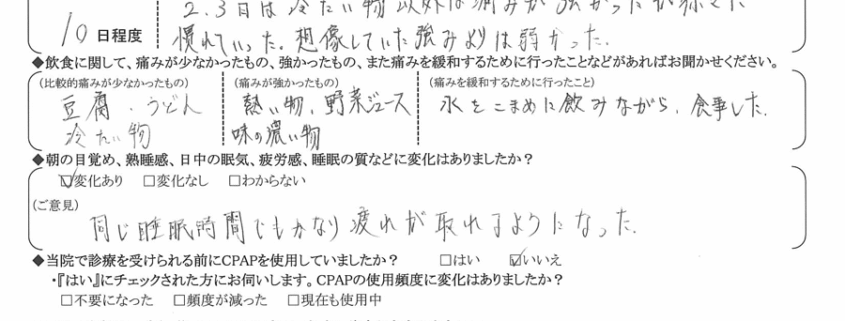 2.3日は冷たい物以外は痛みが強かったが徐々に
10 日程度 慣れていった。想像していた強みよりは弱かった。
◆飲食に関して、痛みが少なかったもの、強かったもの、また痛みを緩和するために行ったことなどがあればお聞かせください。
(比較的痛みが少なかったもの) (痛みが強かったもの) (痛みを緩和するために行ったこと)
豆腐・うどん 熱い物、野菜ジュース 水をこまめに飲みながら、食事した。
冷たい物 味の濃い物
◆朝の目覚め、熟睡感、日中の眠気、疲労感、睡眠の質などに変化はありましたか?
☑変化あり □変化なし □わからない
(ご意見)
同じ睡眠時間でもかなり疲れが取れるようになった。
◆当院で診療を受けられる前にCPAPを使用していましたか? □はい ☑いいえ
・『はい』にチェックされた方にお伺いします。CPAPの使用頻度に変化はありましたか?
□不要になった □頻度が減った □現在も使用中